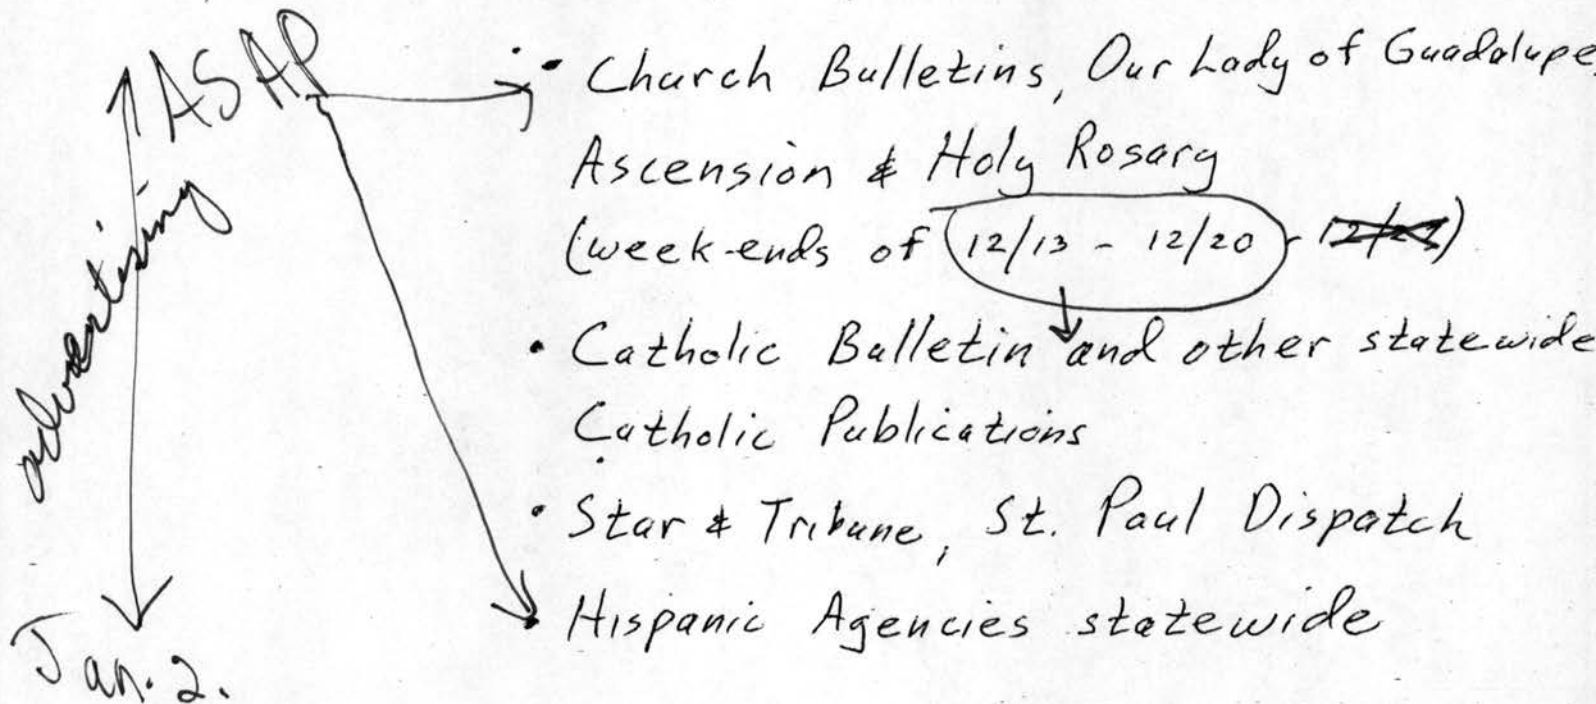 ASAP
advertising
Jan. 2.
• Church Bulletins, Our Lady of Guadalupe
Ascension & Holy Rosary
(week-ends of 12/13 - 12/20 - )
• Catholic Bulletin and other statewide
Catholic Publications
• Star & Tribune, St. Paul Dispatch
• Hispanic Agencies statewide